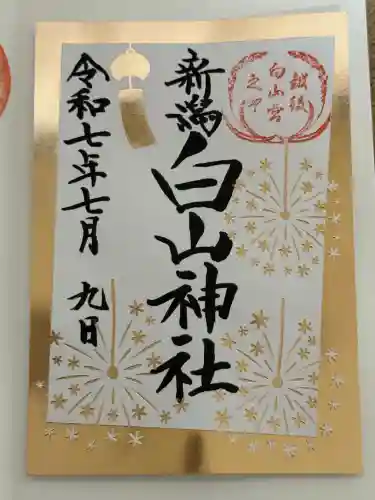 越後
白山宮
之印
新潟
白山神社
令和七年七月
九日